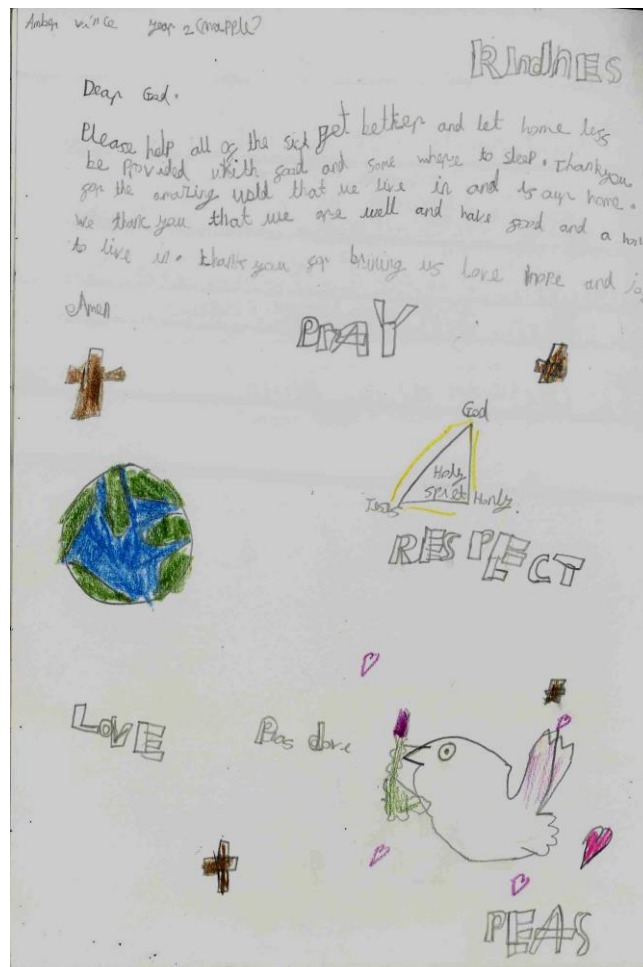 Amber vince year 2 (mapple)
RindNES
Dear God.
Please help all of the sick get better and let home less
be Provided whith food and some where to sleep. Thankyou
for the amazing wold that we live in and is our home.
we thank you that we are well and have food and a hom
to live in. thank you for brining us Love hope and jo
Amen
PrAY
God
Holy
spiret
Jesus
RESPECT
LOVE
dove
PEAS